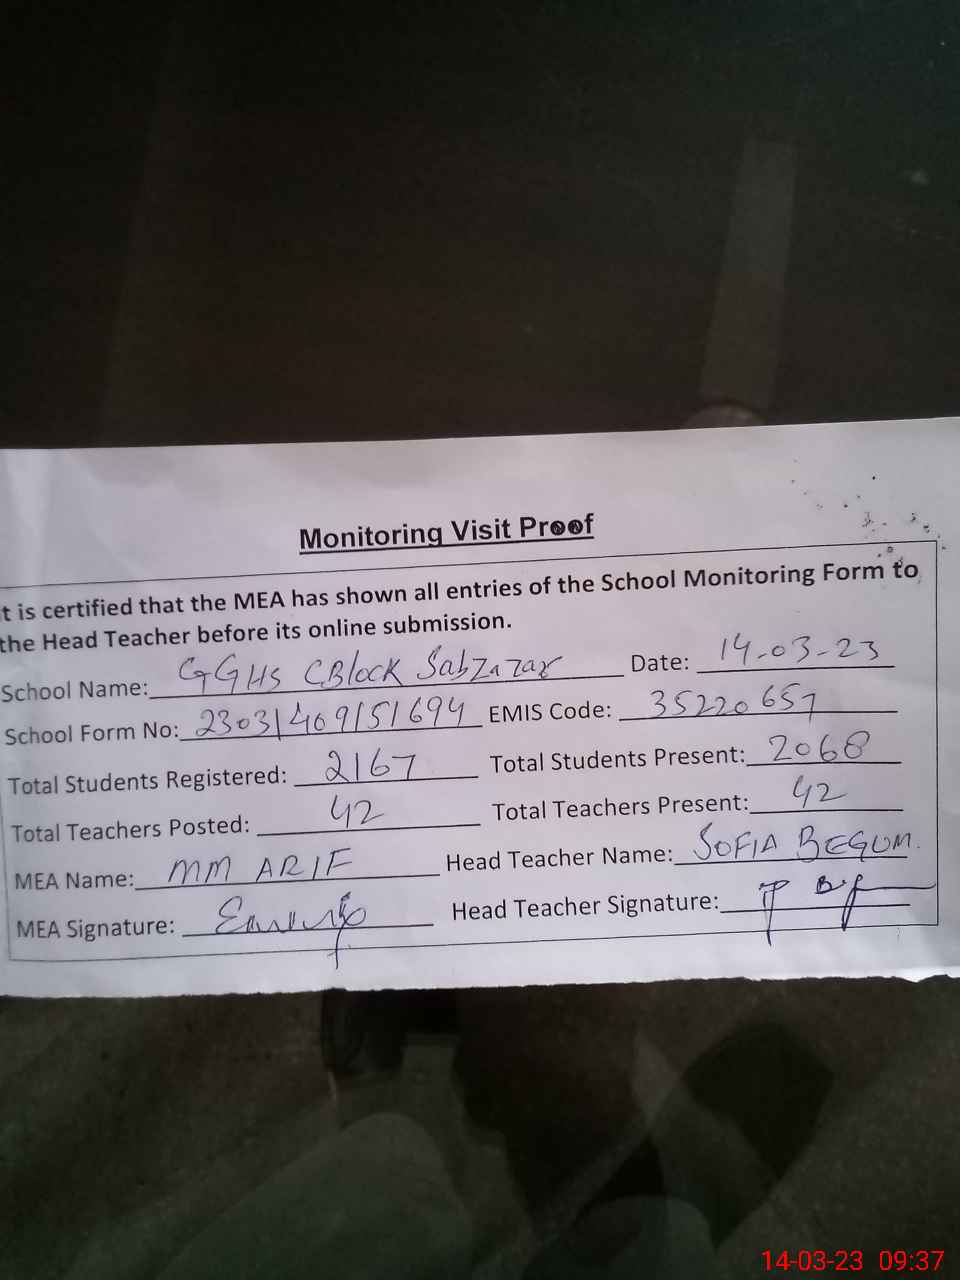 Monitoring Visit Proof
t is certified that the MEA has shown all entries of the School Monitoring Form to
the Head Teacher before its online submission.
School Name: GGHS C Block Sabzazar Date: 14-03-23
School Form No: 2303140915 1694 EMIS Code: 35220657
Total Students Registered: 2167 Total Students Present: 2068
Total Teachers Posted: 42 Total Teachers Present: 42
MEA Name: MM ARIF Head Teacher Name: SOFIA BEGUM.
MEA Signature: Head Teacher Signature:
14-03-23 09:37